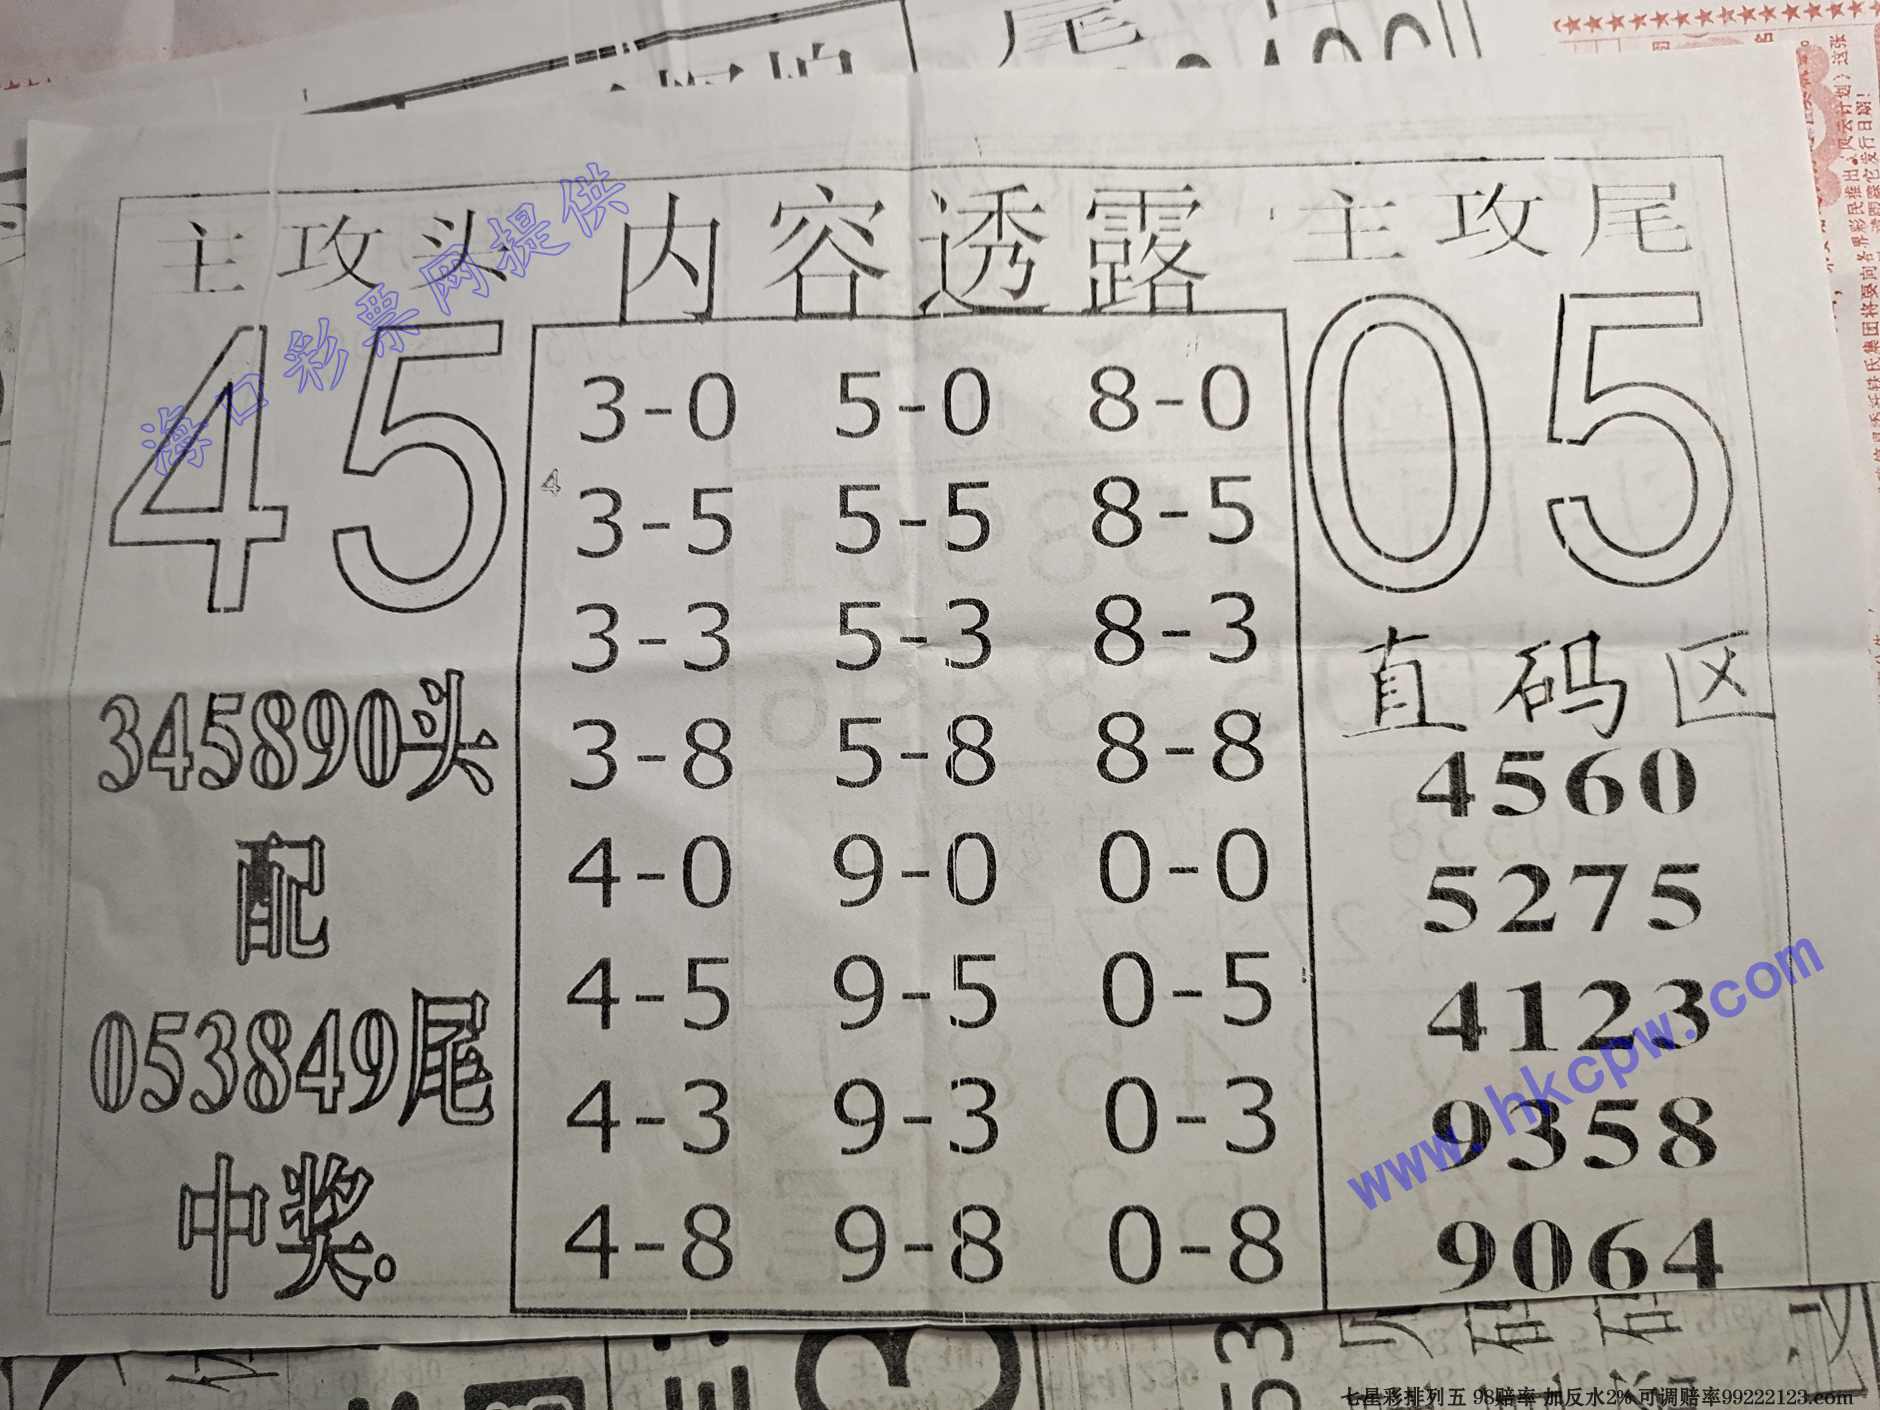 主攻头 内容透露 主攻尾
45
05
3-0 5-0 8-0
3-5 5-5 8-5
3-3 5-3 8-3
3-8 5-8 8-8
4-0 9-0 0-0
4-5 9-5 0-5
4-3 9-3 0-3
4-8 9-8 0-8
345890头
配
053849尾
中奖。
直码区
4560
5275
4123
9358
9064
海口彩票网提供
www.hkcpw.com
七星彩排列五 98赔率 加反水2% 可调赔率99222123.com